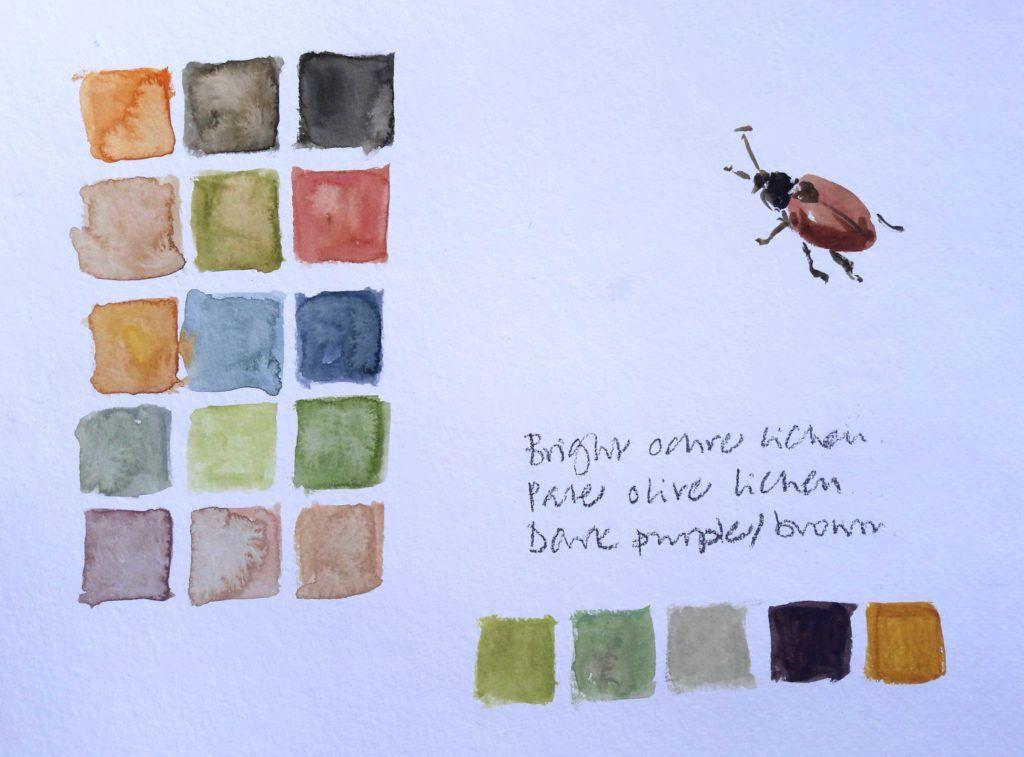 Bright ochre lichen
Pale olive lichen
Dark purple/brown